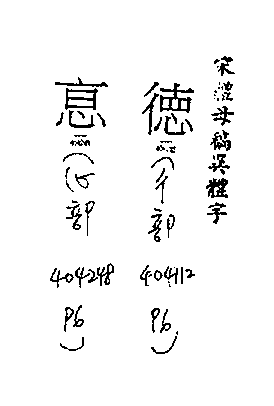 宋體母稿異體字
徳
(彳部
404112
P6)
悳
(心部
404248
P6)